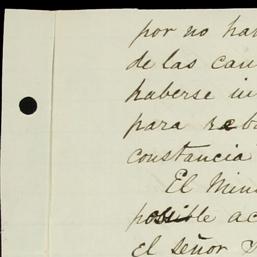 por no ha
de las
haberse in
para
constancia
El Min
possible ac
el señor